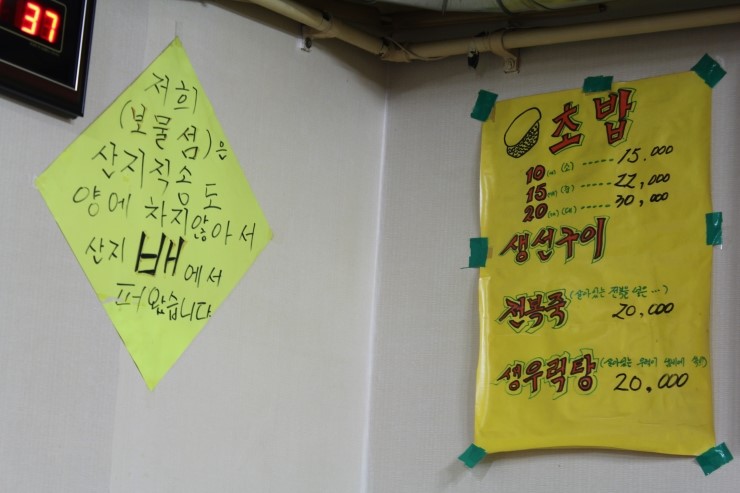 37
저희
(보물섬)은
산지직송도
양에 차지않아서
산지 배에서
퍼왔습니다
초밥
10(pc) (소) ----- 15,000
15(pc) (중) ----- 22,000
20(pc) (대) ----- 30,000
생선구이
전복죽 (살아있는 전복을 넣은...)
20,000
생우럭탕 (살아있는 우럭이
20,000